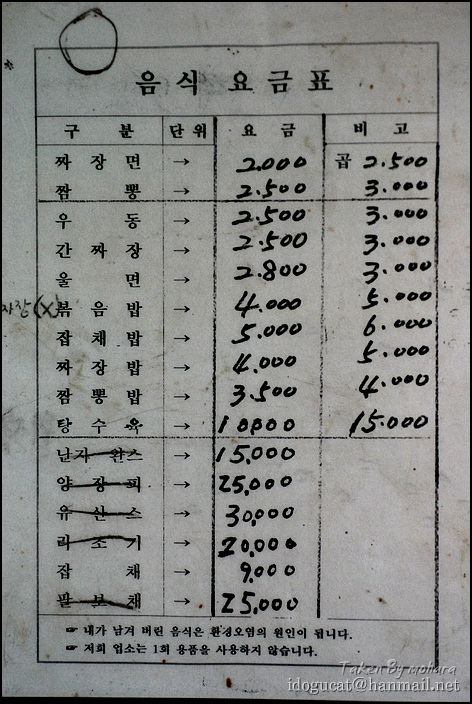 음식 요금표
구 분 단위 요 금 비 고
짜장면 → 2.000 곱 2.500
짬뽕 → 2.500 3.000
우동 → 2.500 3.000
간짜장 → 2.500 3.000
울면 → 2.800 3.000
자장(X) 볶음밥 → 4.000 5.000
잡채밥 → 5.000 6.000
짜장밥 → 4.000 5.000
짬뽕밥 → 3.500 4.000
탕수육 → 10000 15.000
난자완스 → 15,000
양장피 → 25,000
유산스 → 30,000
라조기 → 20,000
잡채 → 9,000
팔보채 → 25,000
☞ 내가 남겨 버린 음식은 환경오염의 원인이 됩니다.
☞ 저희 업소는 1회 용품을 사용하지 않습니다.
Taken By mohara
idogucat@hanmail.net